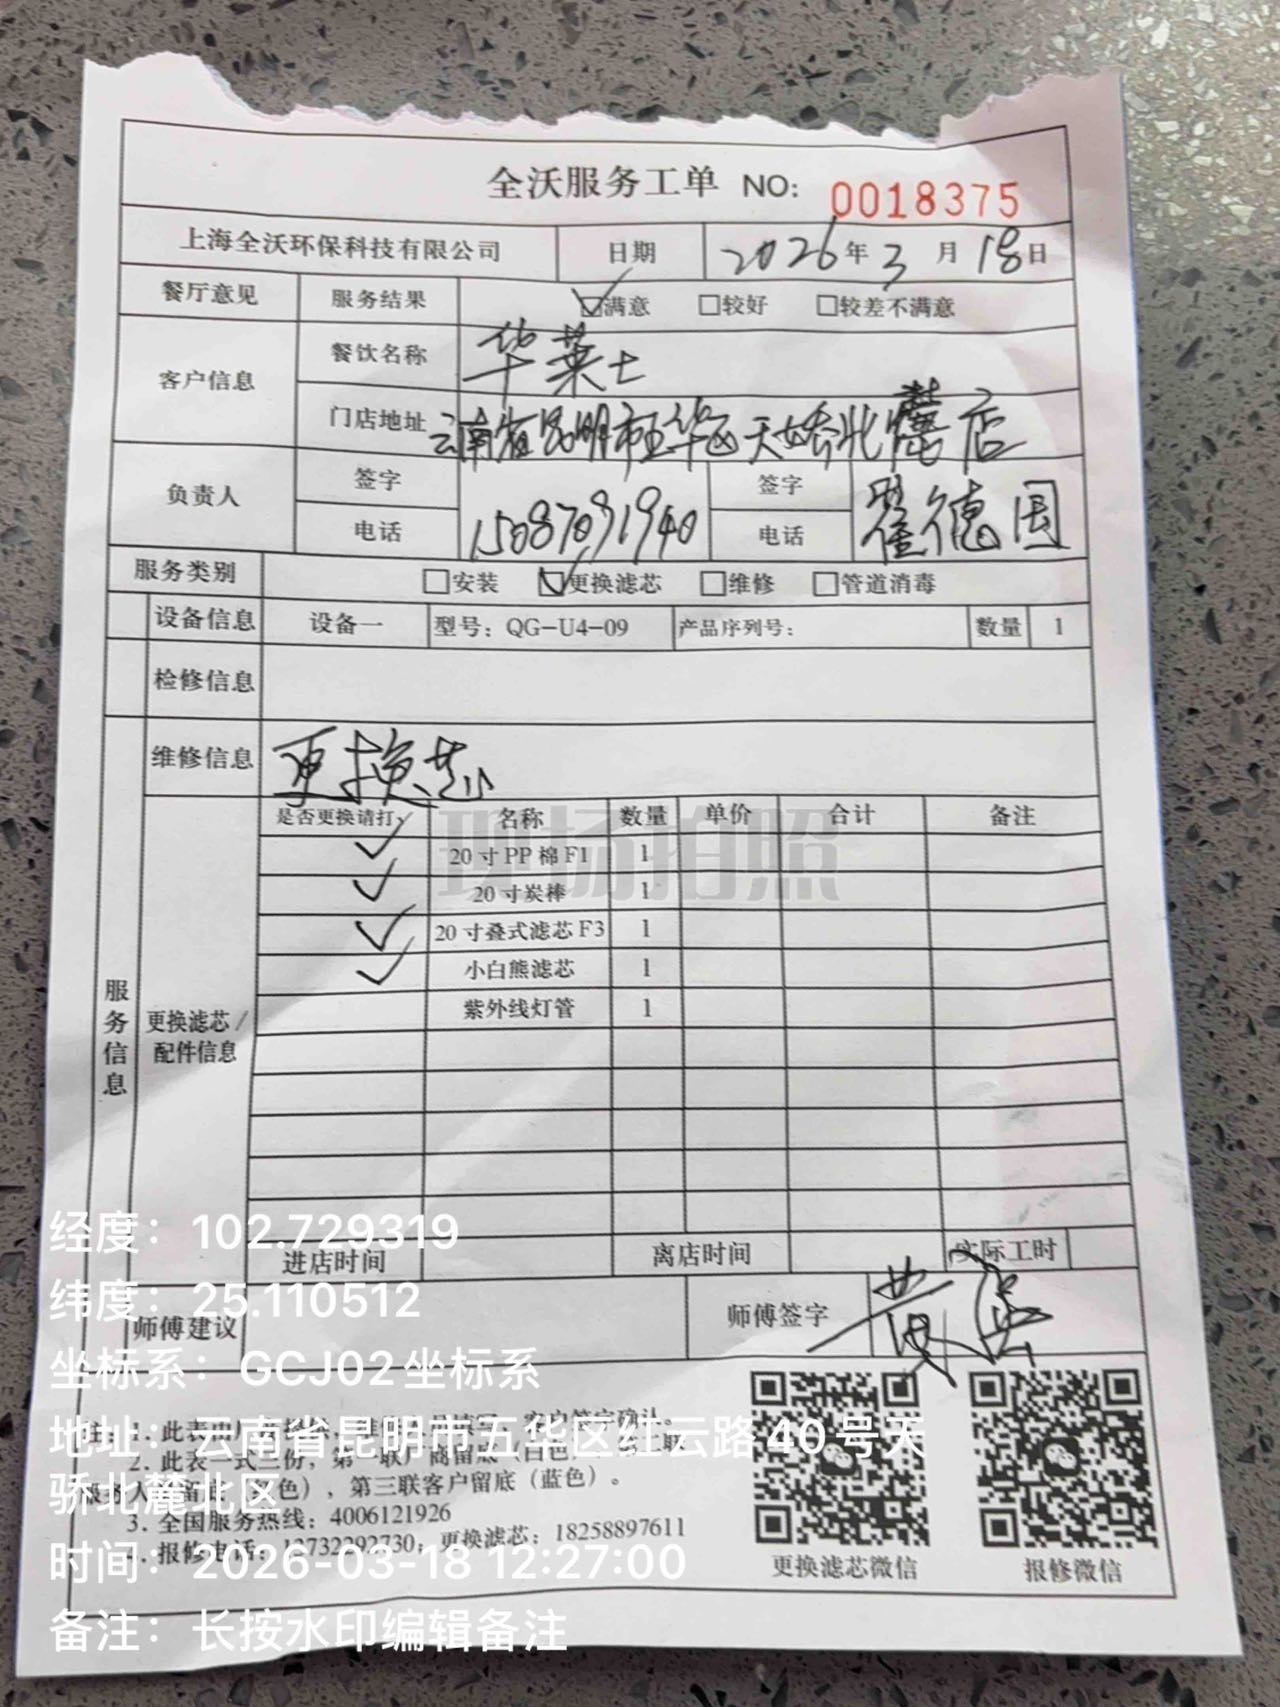 全沃服务工单 NO: 0018375
上海全沃环保科技有限公司 日期 2026年3月18日
餐厅意见 服务结果 ☑满意 □较好 □较差不满意
客户信息 餐饮名称 华莱士
门店地址 云南省昆明市五华区天娇北麓店
负责人 签字 签字 翟德国
电话 15087091940 电话
服务类别 □安装 ☑更换滤芯 □维修 □管道消毒
设备信息 设备一 型号：QG-U4-09 产品序列号： 数量 1
检修信息
维修信息 更换芯
服务信息
更换滤芯/配件信息
是否更换请打✓ 名称 数量 单价 合计 备注
✓ 20寸PP棉F1 1
✓ 20寸炭棒 1
✓ 20寸叠式滤芯F3 1
✓ 小白熊滤芯 1
紫外线灯管 1
现场拍照
进店时间 离店时间 实际工时
师傅建议 师傅签字 黄
3. 全国服务热线：4006121926
报修电话： 更换滤芯：18258897611
更换滤芯微信 报修微信
经度：102.729319
纬度：25.110512
坐标系：GCJ02坐标系
地址：云南省昆明市五华区红云路40号天
骄北麓北区
时间：2026-03-18 12:27:00
备注：长按水印编辑备注